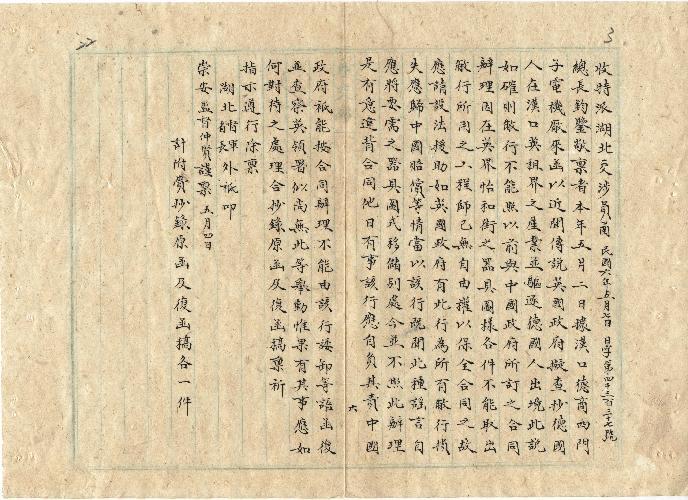 收特派湖北交涉員函 民國六年五月七日 日字第四千三百三十七號
總長鈞鑒敬稟者本年五月二日據漢口德商西門
子電機廠來函以近聞傳說英國政府擬查抄德國
人在漢口英租界之產業並驅逐德國人出境此說
如確則敝行不能照以前與中國政府所訂之合同
辦理因在英界怡和街之器具圖樣各件不能取出
敝行所用之工程師已無自由權以保全合同之故
應請設法援助如英國政府有此行為所有敝行損
失應歸中國賠償等情當以該行既聞此種謠言自
應將要需之器具圖式移儲別處今並不照此辦理
是有意違背合同他日有事該行應自負其責中國
六
政府祇能按合同辦理不能由該行諉卸等語函復
並查察英領署似尚無此等舉動惟果有其事應如
何對待之處理合抄錄原函及復函稿稟祈
指示遵行除稟
湖北督軍省長外祗叩
崇安 監督仲賢謹稟 五月四日
計附賫抄錄原函及復函稿各一件